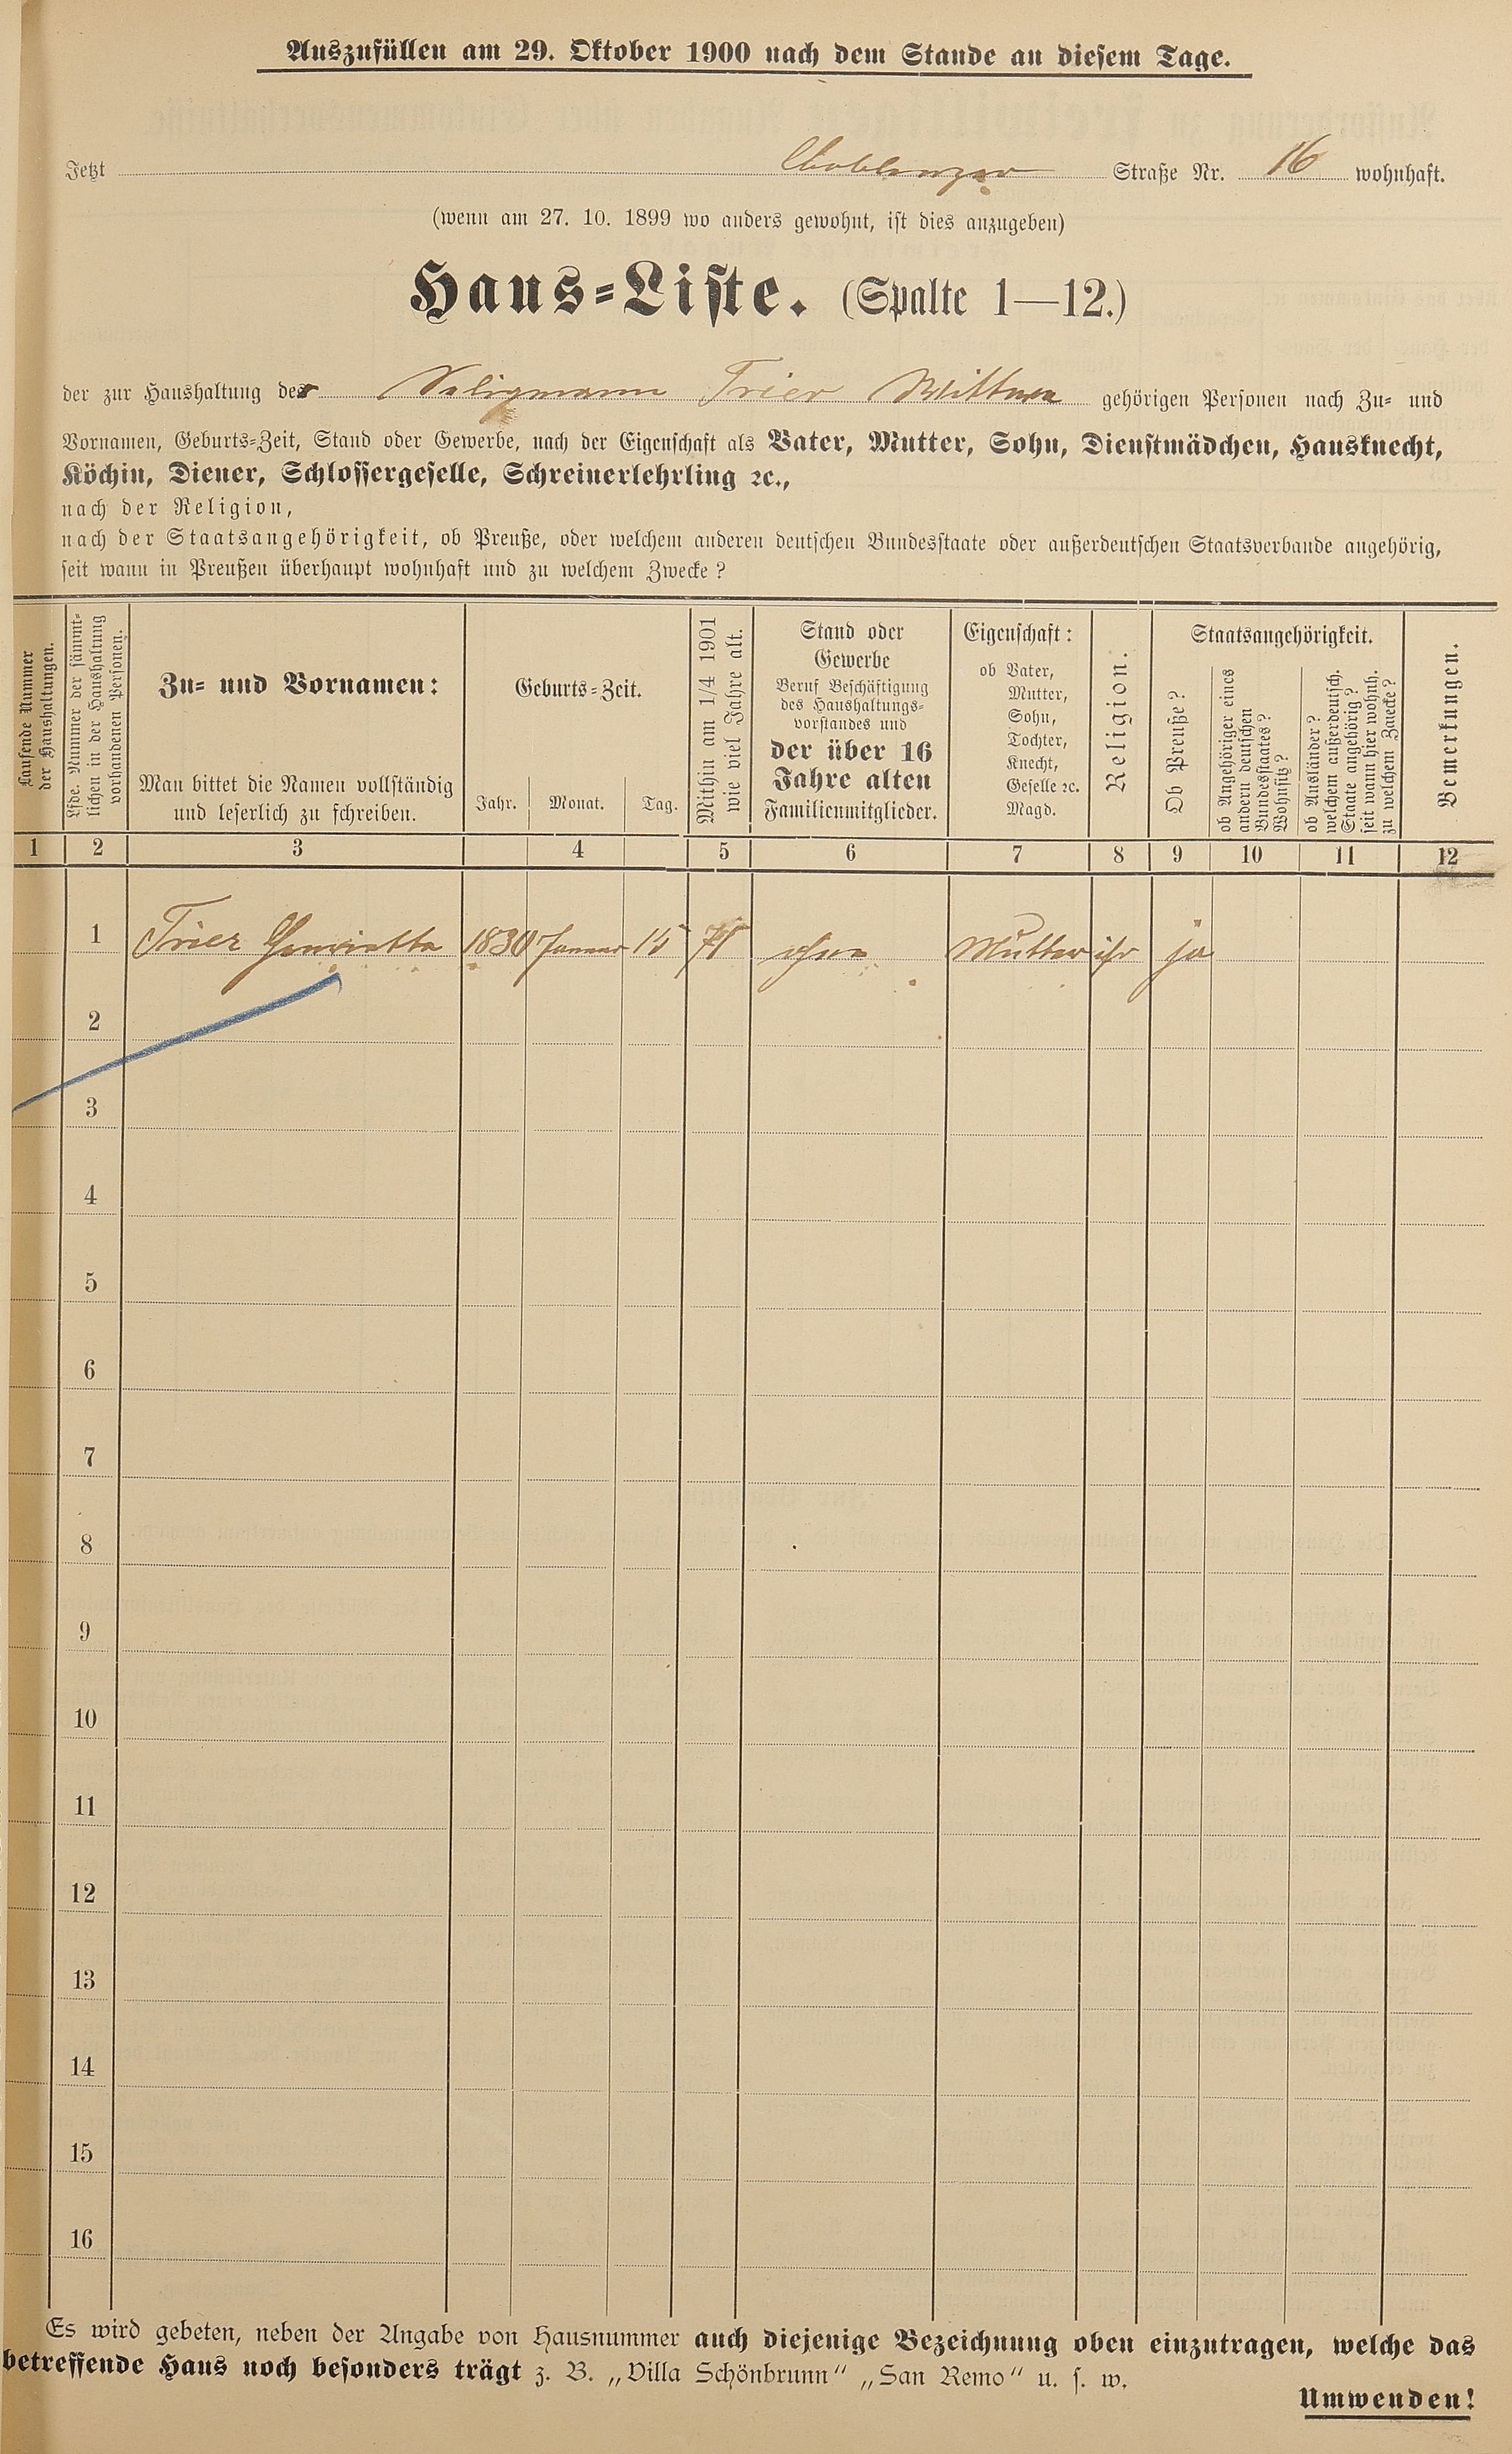 Auszufüllen am 29. Oktober 1900 nach dem Stande an diesem Tage.
Jetzt Coblenzer Straße Nr. 16 wohnhaft.
(wenn am 27. 10. 1899 wo anders gewohnt, ist dies anzugeben)
Haus-Liste. (Spalte 1—12.)
der zur Haushaltung der Seligmann Trier Wittwe gehörigen Personen nach Zu- und
Vornamen, Geburts-Zeit, Stand oder Gewerbe, nach der Eigenschaft als Vater, Mutter, Sohn, Dienstmädchen, Hausknecht,
Köchin, Diener, Schlossergeselle, Schreinerlehrling ꝛc.,
nach der Religion,
nach der Staatsangehörigkeit, ob Preuße, oder welchem anderen deutschen Bundesstaate oder außerdeutschen Staatsverbande angehörig,
seit wann in Preußen überhaupt wohnhaft und zu welchem Zwecke?
Laufende Nummer
der Haushaltungen.
Lfde. Nummer der sämmt-
lichen in der Haushaltung
vorhandenen Personen.
Zu- und Vornamen:
Man bittet die Namen vollständig
und leserlich zu schreiben.
Geburts-Zeit.
Jahr. Monat. Tag.
Mithin am 1/4 1901
wie viel Jahre alt.
Stand oder
Gewerbe
Beruf Beschäftigung
des Haushaltungs-
vorstandes und
der über 16
Jahre alten
Familienmitglieder.
Eigenschaft:
ob Vater,
Mutter,
Sohn,
Tochter,
Knecht,
Geselle ꝛc.
Magd.
Religion.
Staatsangehörigkeit.
Ob Preuße?
ob Angehöriger eines
andern deutschen
Bundesstaates?
Wohnsitz?
ob Ausländer?
welchem außerdeutsch.
Staate angehörig?
seit wann hier wohnh.
zu welchem Zwecke?
Bemerkungen.
1 2 3 4 5 6 7 8 9 10 11 12
1 Trier Henriette 1830 Januar 15 71 ohne Mutter isr ja
2
3
4
5
6
7
8
9
10
11
12
13
14
15
16
Es wird gebeten, neben der Angabe von Hausnummer auch diejenige Bezeichnung oben einzutragen, welche das
betreffende Haus noch besonders trägt z. B. „Villa Schönbrunn“ „San Remo“ u. s. w.
Umwenden!